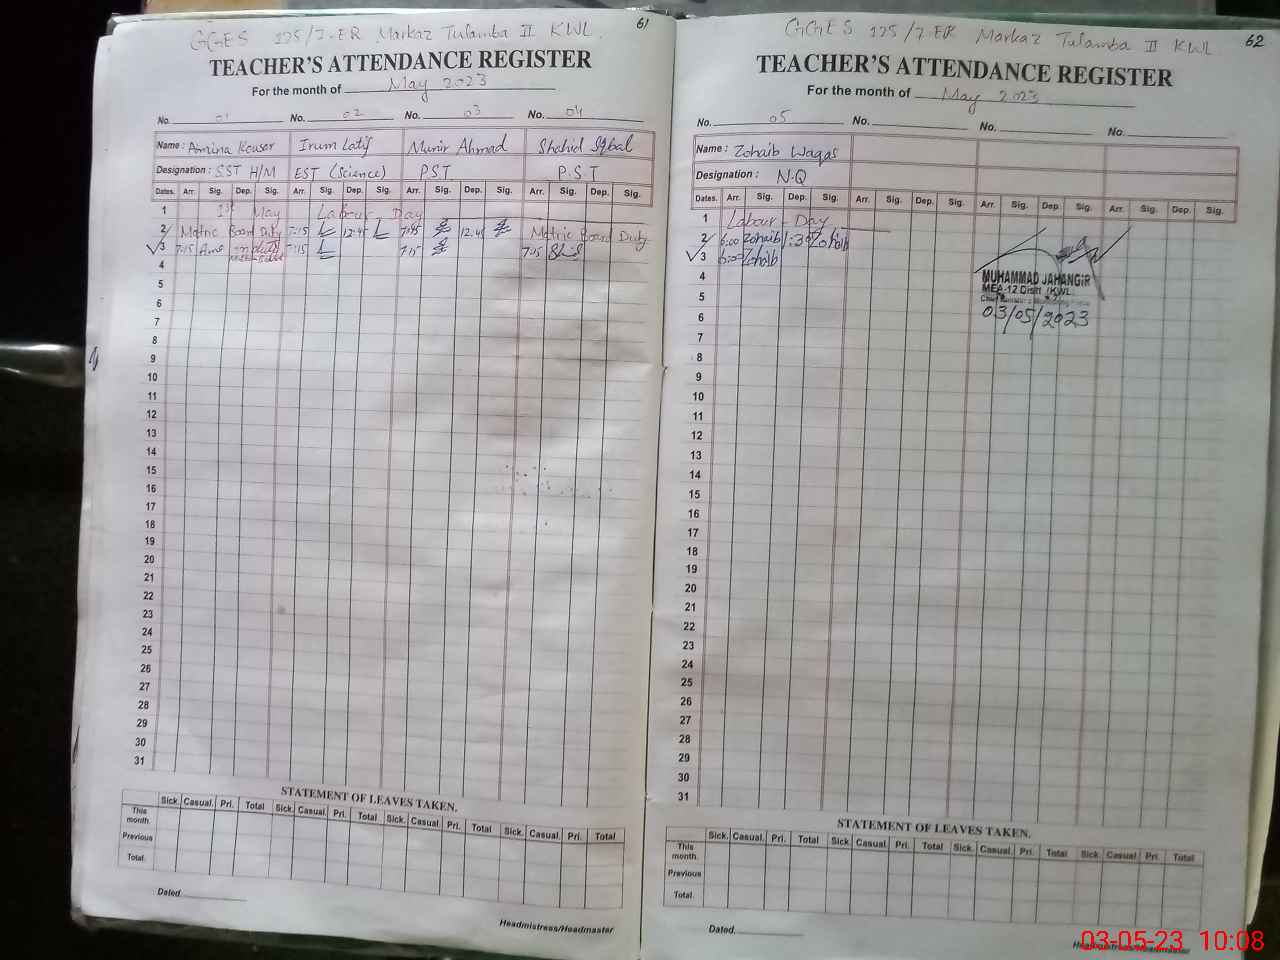 61
GGES 125/7-ER Markaz Tulamba II KWL.
TEACHER'S ATTENDANCE REGISTER
For the month of May 2023
No. 01 No. 02 No. 03 No. 04
Name: Amina Kousar Irum Latif Munir Ahmad Shahid Iqbal
Designation: SST H/M EST (Science) PST P.S.T
Dates. Arr. Sig. Dep. Sig. Arr. Sig. Dep. Sig. Arr. Sig. Dep. Sig. Arr. Sig. Dep. Sig.
1 1st May Labour Day
2 Matric Board Duty 7:15 12:45 7:45 12:45 Matric Board Duty
3 7:15 7:15 7:15 7:15
4
5
6
7
8
9
10
11
12
13
14
15
16
17
18
19
20
21
22
23
24
25
26
27
28
29
30
31
STATEMENT OF LEAVES TAKEN.
Sick. Casual. Pri. Total Sick. Casual. Pri. Total Sick. Casual. Pri. Total Sick. Casual. Pri. Total
This month.
Previous
Total.
Dated
Headmistress/Headmaster
62
GGES 125/7-ER Markaz Tulamba II KWL
TEACHER'S ATTENDANCE REGISTER
For the month of May 2023
No. 05 No. No. No.
Name: Zohaib Waqas
Designation: N.Q
Dates. Arr. Sig. Dep. Sig. Arr. Sig. Dep. Sig. Arr. Sig. Dep. Sig. Arr. Sig. Dep. Sig.
1 Labour-Day
2 6:00 Zohaib 1:30 Zohaib
3 6:00 Zohaib
4
5
6
7
8
9
10
11
12
13
14
15
16
17
18
19
20
21
22
23
24
25
26
27
28
29
30
31
MUHAMMAD JAHANGIR
MEA-12 Distt. (KWL)
03/05/2023
STATEMENT OF LEAVES TAKEN.
Sick. Casual. Pri. Total Sick. Casual. Pri. Total Sick. Casual. Pri. Total Sick. Casual Pri. Total
This month.
Previous
Total.
Dated
Headmistress/Headmaster
03-05-23 10:08